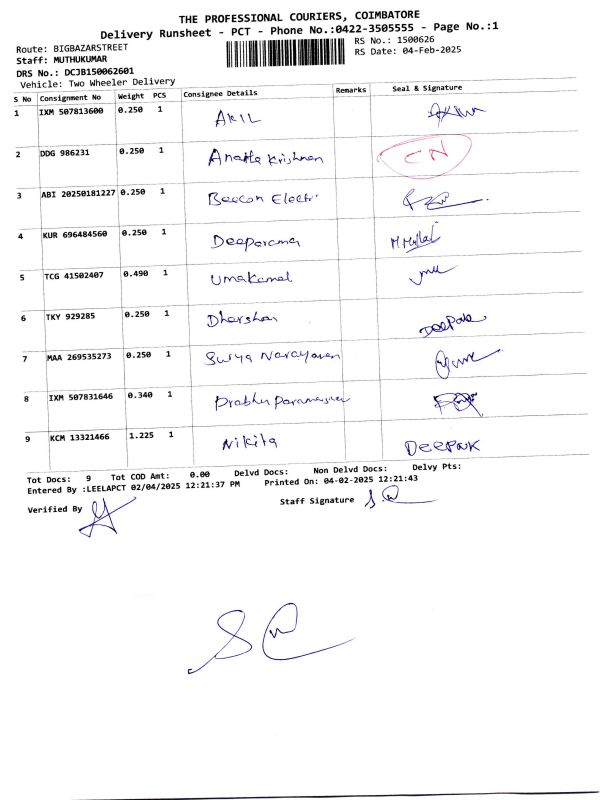 THE PROFESSIONAL COURIERS, COIMBATORE
Delivery Runsheet - PCT - Phone No.:0422-3505555 - Page No.:1
Route: BIGBAZARSTREET
RS No.: 1500626
Staff: MUTHUKUMAR
RS Date: 04-Feb-2025
DRS No.: DCJB150062601
Vehicle: Two Wheeler Delivery
S No Consignment No Weight PCS Consignee Details Remarks Seal & Signature
1 IXM 507813600 0.250 1 AKIL
2 DDG 986231 0.250 1 Krishnan CN
3 ABI 20250181227 0.250 1 Beacon Electri
4 KUR 696484560 0.250 1 Deeparama
5 TCG 41502407 0.490 1 Umakamal
6 TKY 929285 0.250 1 Dharshan Deepak
7 MAA 269535273 0.250 1 Surya Narayanan
8 IXM 507831646 0.340 1 Prabhu
9 KCM 13321466 1.225 1 Nikita DEEPAK
Tot Docs: 9 Tot COD Amt: 0.00 Delvd Docs: Non Delvd Docs: Delvy Pts:
Entered By :LEELAPCT 02/04/2025 12:21:37 PM Printed On: 04-02-2025 12:21:43
Verified By
Staff Signature